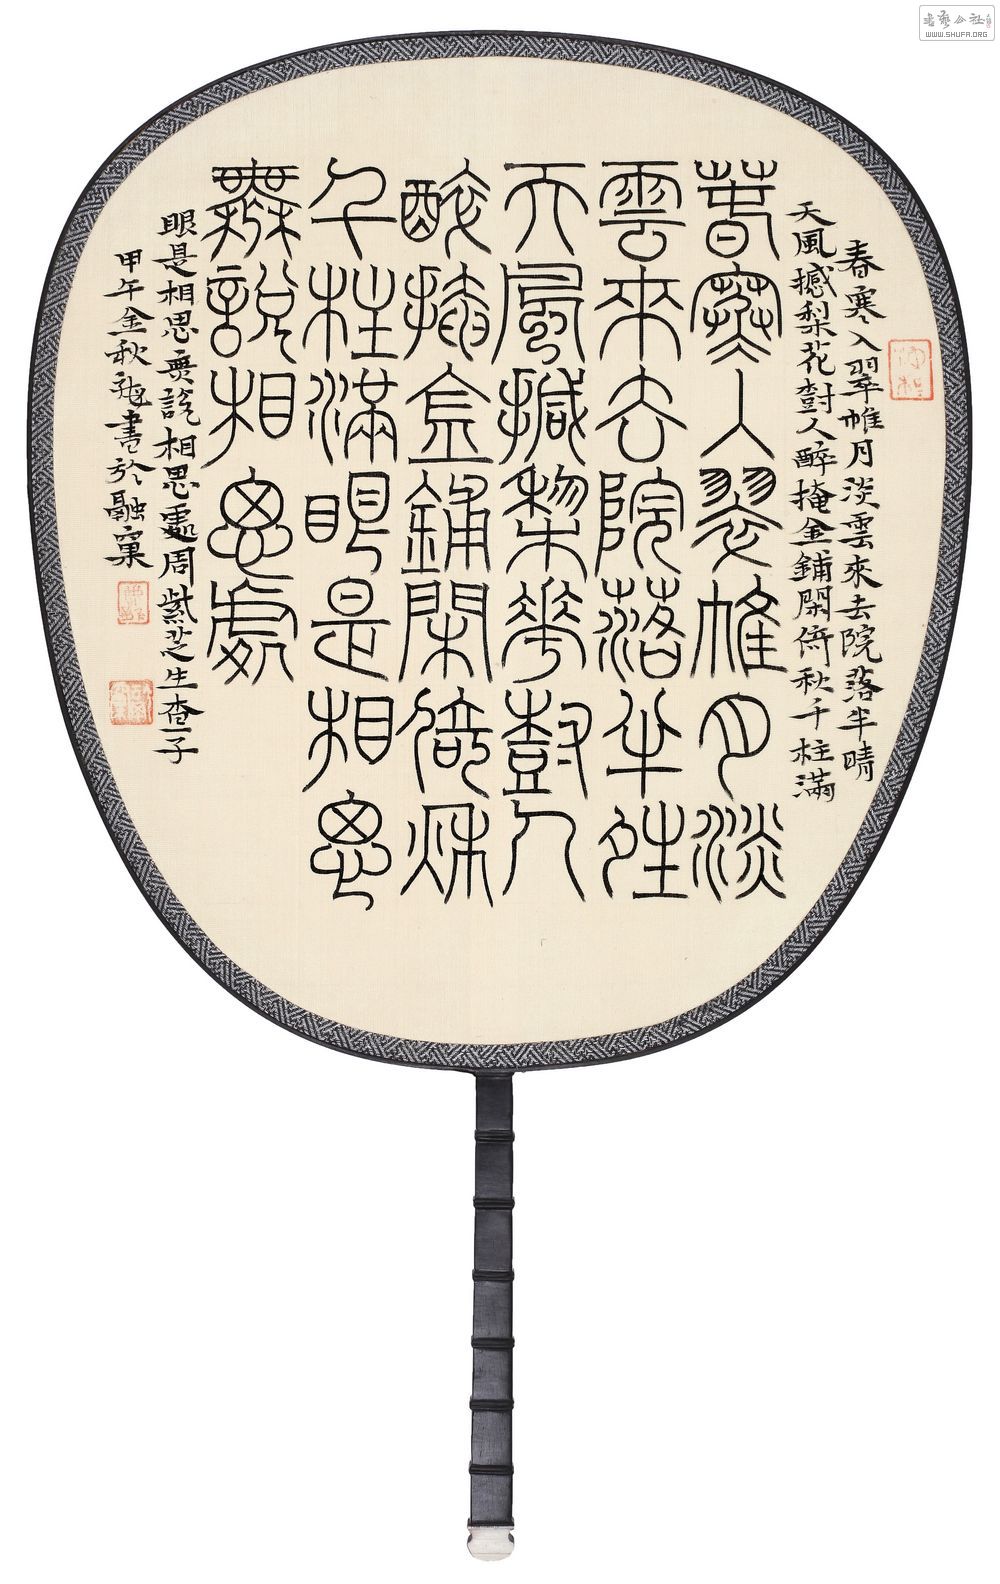 書藝公社
WWW.SHUFA.ORG
春寒入翠帷月淡雲來去院落半晴
天風撼梨花樹人醉掩金鋪閑倚秋千柱滿
春寒人翠帷月淡
雲來去院落半夝
天風撼梨華尌人
醉掩金鋪閑倚秋
千柱滿眼是相思
無說相思處
眼是相思無說相思處周紫芝生查子
甲午金秋書於融窠